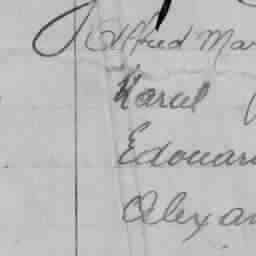 Alfred Mar
Marcel
Edouar
Alexan